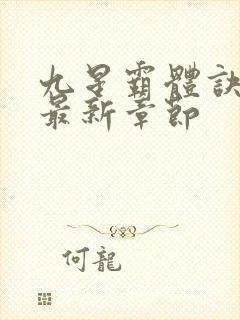 九星霸體訣
最新章節
何龍